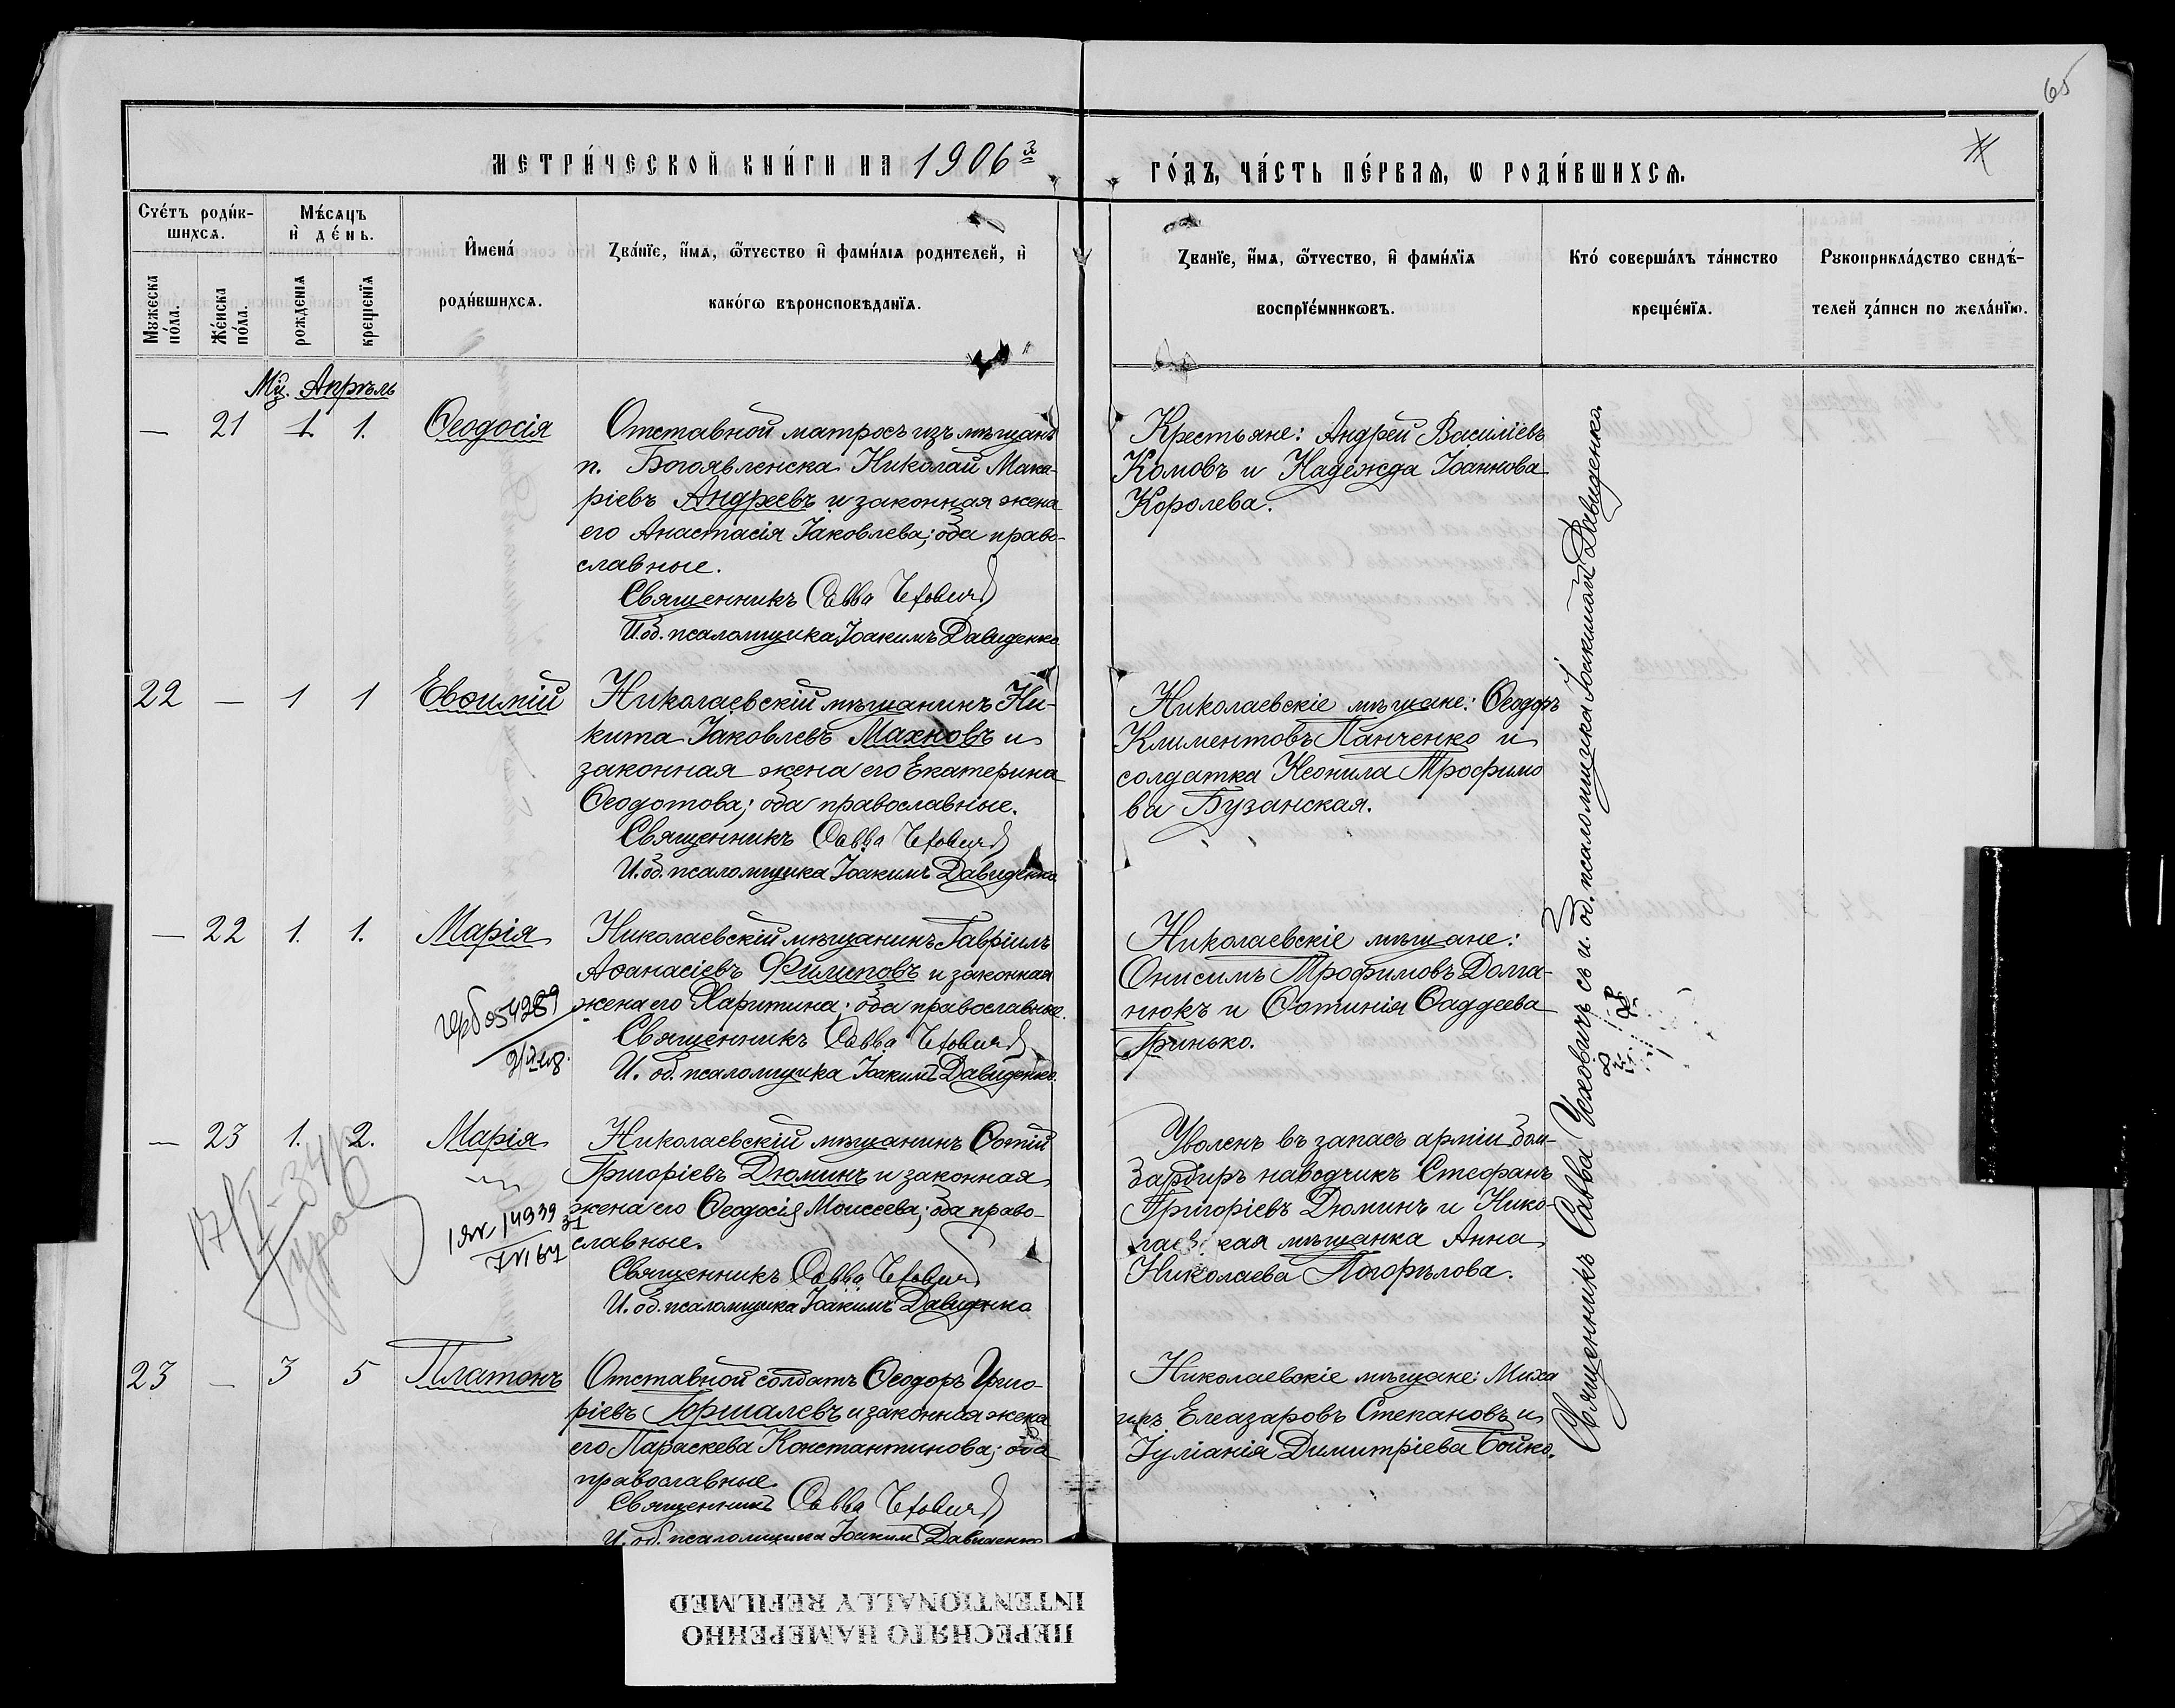 65
МЕТРИ́ЧЕСКОЙ КНИ́ГИ НА 1906й
ГО́ДЪ, ЧА́СТЬ ПЕ́РВАѦ, Ѡ РОДИ́ВШИХСѦ.
Сче́тъ роди́в-
шихсѧ.
Мѣ́сѧцъ
и҆ де́нь.
И҆мена́
роди́вшихсѧ.
Зва́нїе, и҆́мѧ, ѻ҆́тчество и҆ фами́лїѧ родителей, и҆
како́гѡ вѣроисповѣданїѧ.
Званїе, и҆́мѧ, ѻ҆́тчество, и҆ фами́лїѧ
воспрїе́мникѡвъ.
Кто́ соверша́лъ та́инство
креще́нїѧ.
Рукоприкла́дство свидѣ́-
телей за́писи по жела́нїю.
Мужеска
по́ла.
Же́нска
по́ла.
рожденїѧ
крещенїѧ
Мц. Апрѣль
— 21 1. 1. Ѳеодосія
Отставной матросъ изъ мѣщанъ
п. Богоявленска Николай Мака-
ріевъ Андреевъ и законная жена
его Анастасія Іаковлева; оба право-
славные.
Священникъ Савва Чехович
И.об. псаломщика Іоакимъ Давиденко
Крестьяне: Андрей Василіевъ
Комовъ и Надежда Іоаннова
Королева.
22 — 1 1 Евѳимій
Николаевскій мѣщанинъ Ни-
кита Іаковлевъ Махновъ и
законная жена его Екатерина
Ѳеодотова; оба православные.
Священникъ Савва Чехович
И.об. псаломщика Іоакимъ Давиденко
Николаевскіе мѣщане: Ѳеодоръ
Климентовъ Панченко и
солдатка Неонила Трофимо
ва Бузанская.
— 22 1. 1. Марія
Николаевскій мѣщанинъ Гавріилъ
Аѳанасіевъ Филиповъ и законная
жена его Харитина; оба православные.
Священникъ Савва Чехович
И. об. псаломщика Іоакимъ Давиденко.
054289
Николаевскіе мѣщане:
Онисимъ Трофимовъ Долга-
нюкъ и Ѳотинія Ѳаддеева
Гринько.
— 23 1. 2. Марія
Николаевскій мѣщанинъ Ѳотій
Григоріевъ Дюминъ и законная
жена его Ѳеодосія Моисеева; оба право-
славные.
Священникъ Савва Чехович
И. об. псаломщика Іоакимъ Давиденко
14939
Уволенъ въ запасъ арміи бом-
бардиръ наводчикъ Стефанъ
Григоріевъ Дюминъ и Нико-
лаевская мѣщанка Анна
Николаева Погорѣлова.
23 — 3 5 Платонъ
Отставной солдатъ Ѳеодоръ Григо-
ріевъ Горшалевъ и законная жена
его Параскева Константинова; оба
православные
Священникъ Савва Чехович
И. об. псаломщика Іоакимъ Давиденко
Николаевскіе мѣщане: Миха
илъ Елеазаровъ Степановъ и
Іуліанія Димитріева Бойко.
Священникъ Савва Чеховичъ съ и. об. псаломщика Іоакимомъ Давиденко.
ПЕРЕСНЯТО НАМЕРЕННО
INTENTIONALLY REFILMED